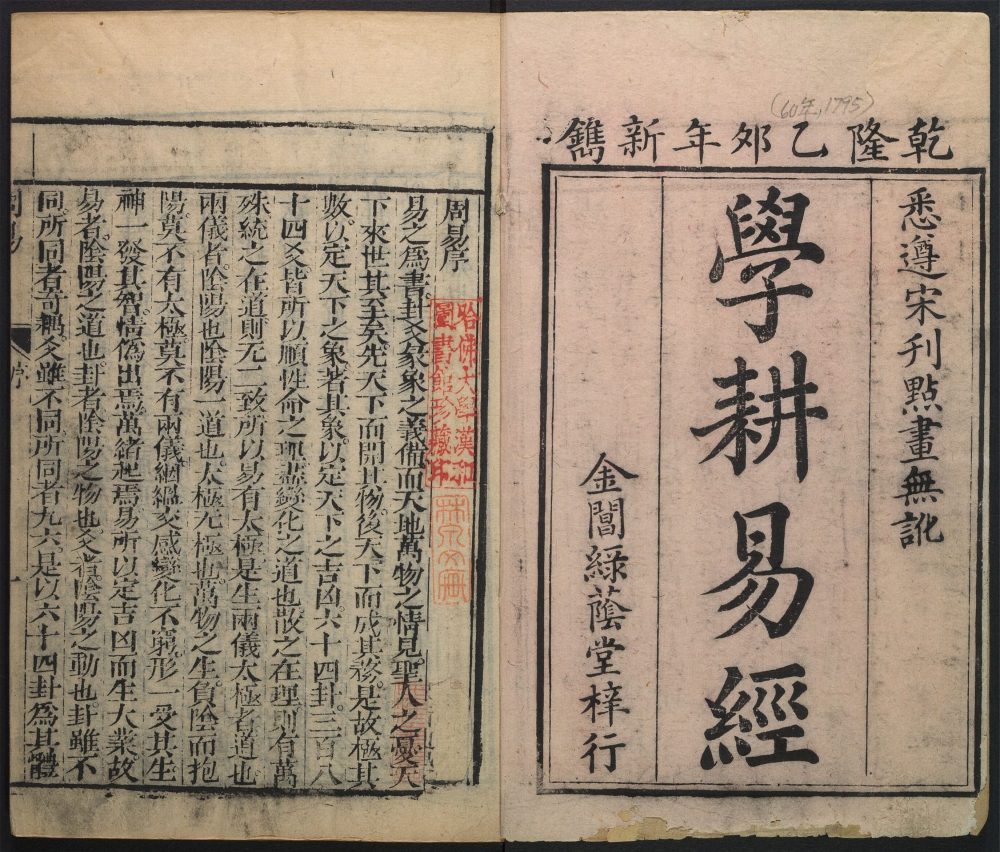 (60年, 1795)
乾隆乙夘年新鐫
悉遵宋刊點畫無訛
學耕易經
金閶綠蔭堂梓行
周易序
哈佛大學漢和
圖書館珍藏印
易之爲書卦爻彖象之義備而天地萬物之情見聖人之憂天
下來世其至矣先天下而開其物後天下而成其務是故極其
數以定天下之象著其象以定天下之吉凶六十四卦三百八
十四爻皆所以順性命之理盡變化之道也散之在理則有萬
殊統之在道則无二致所以易有太極是生兩儀太極者道也
兩儀者陰陽也陰陽一道也太極无極也萬物之生負陰而抱
陽莫不有太極莫不有兩儀絪縕交感變化不窮形一受其生
神一發其智情偽出焉萬緒起焉易所以定吉凶而生大業故
易者陰陽之道也卦者陰陽之物也爻者陰陽之動也卦雖不
同所同者奇耦爻雖不同所同者九六是以六十四卦爲其體
周易
序
一